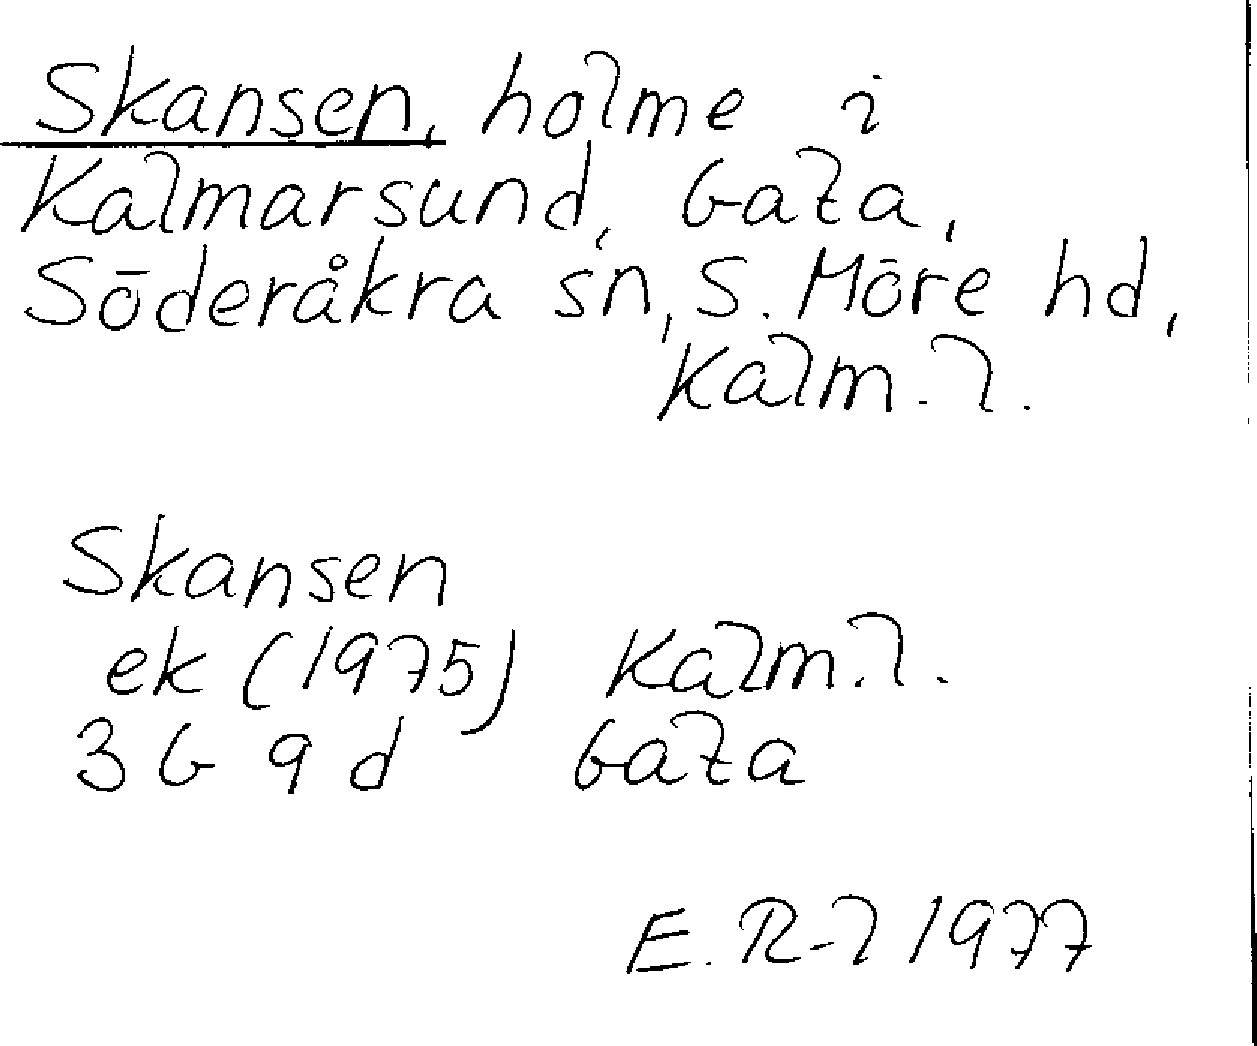 Skansen, holme i
Kalmarsund, Gata,
Söderåkra sn, S. Möre hd,
Kalm. l.
Skansen
ek (1975) Kalm. l.
3 G 9 d Gata
E. R-l 1977